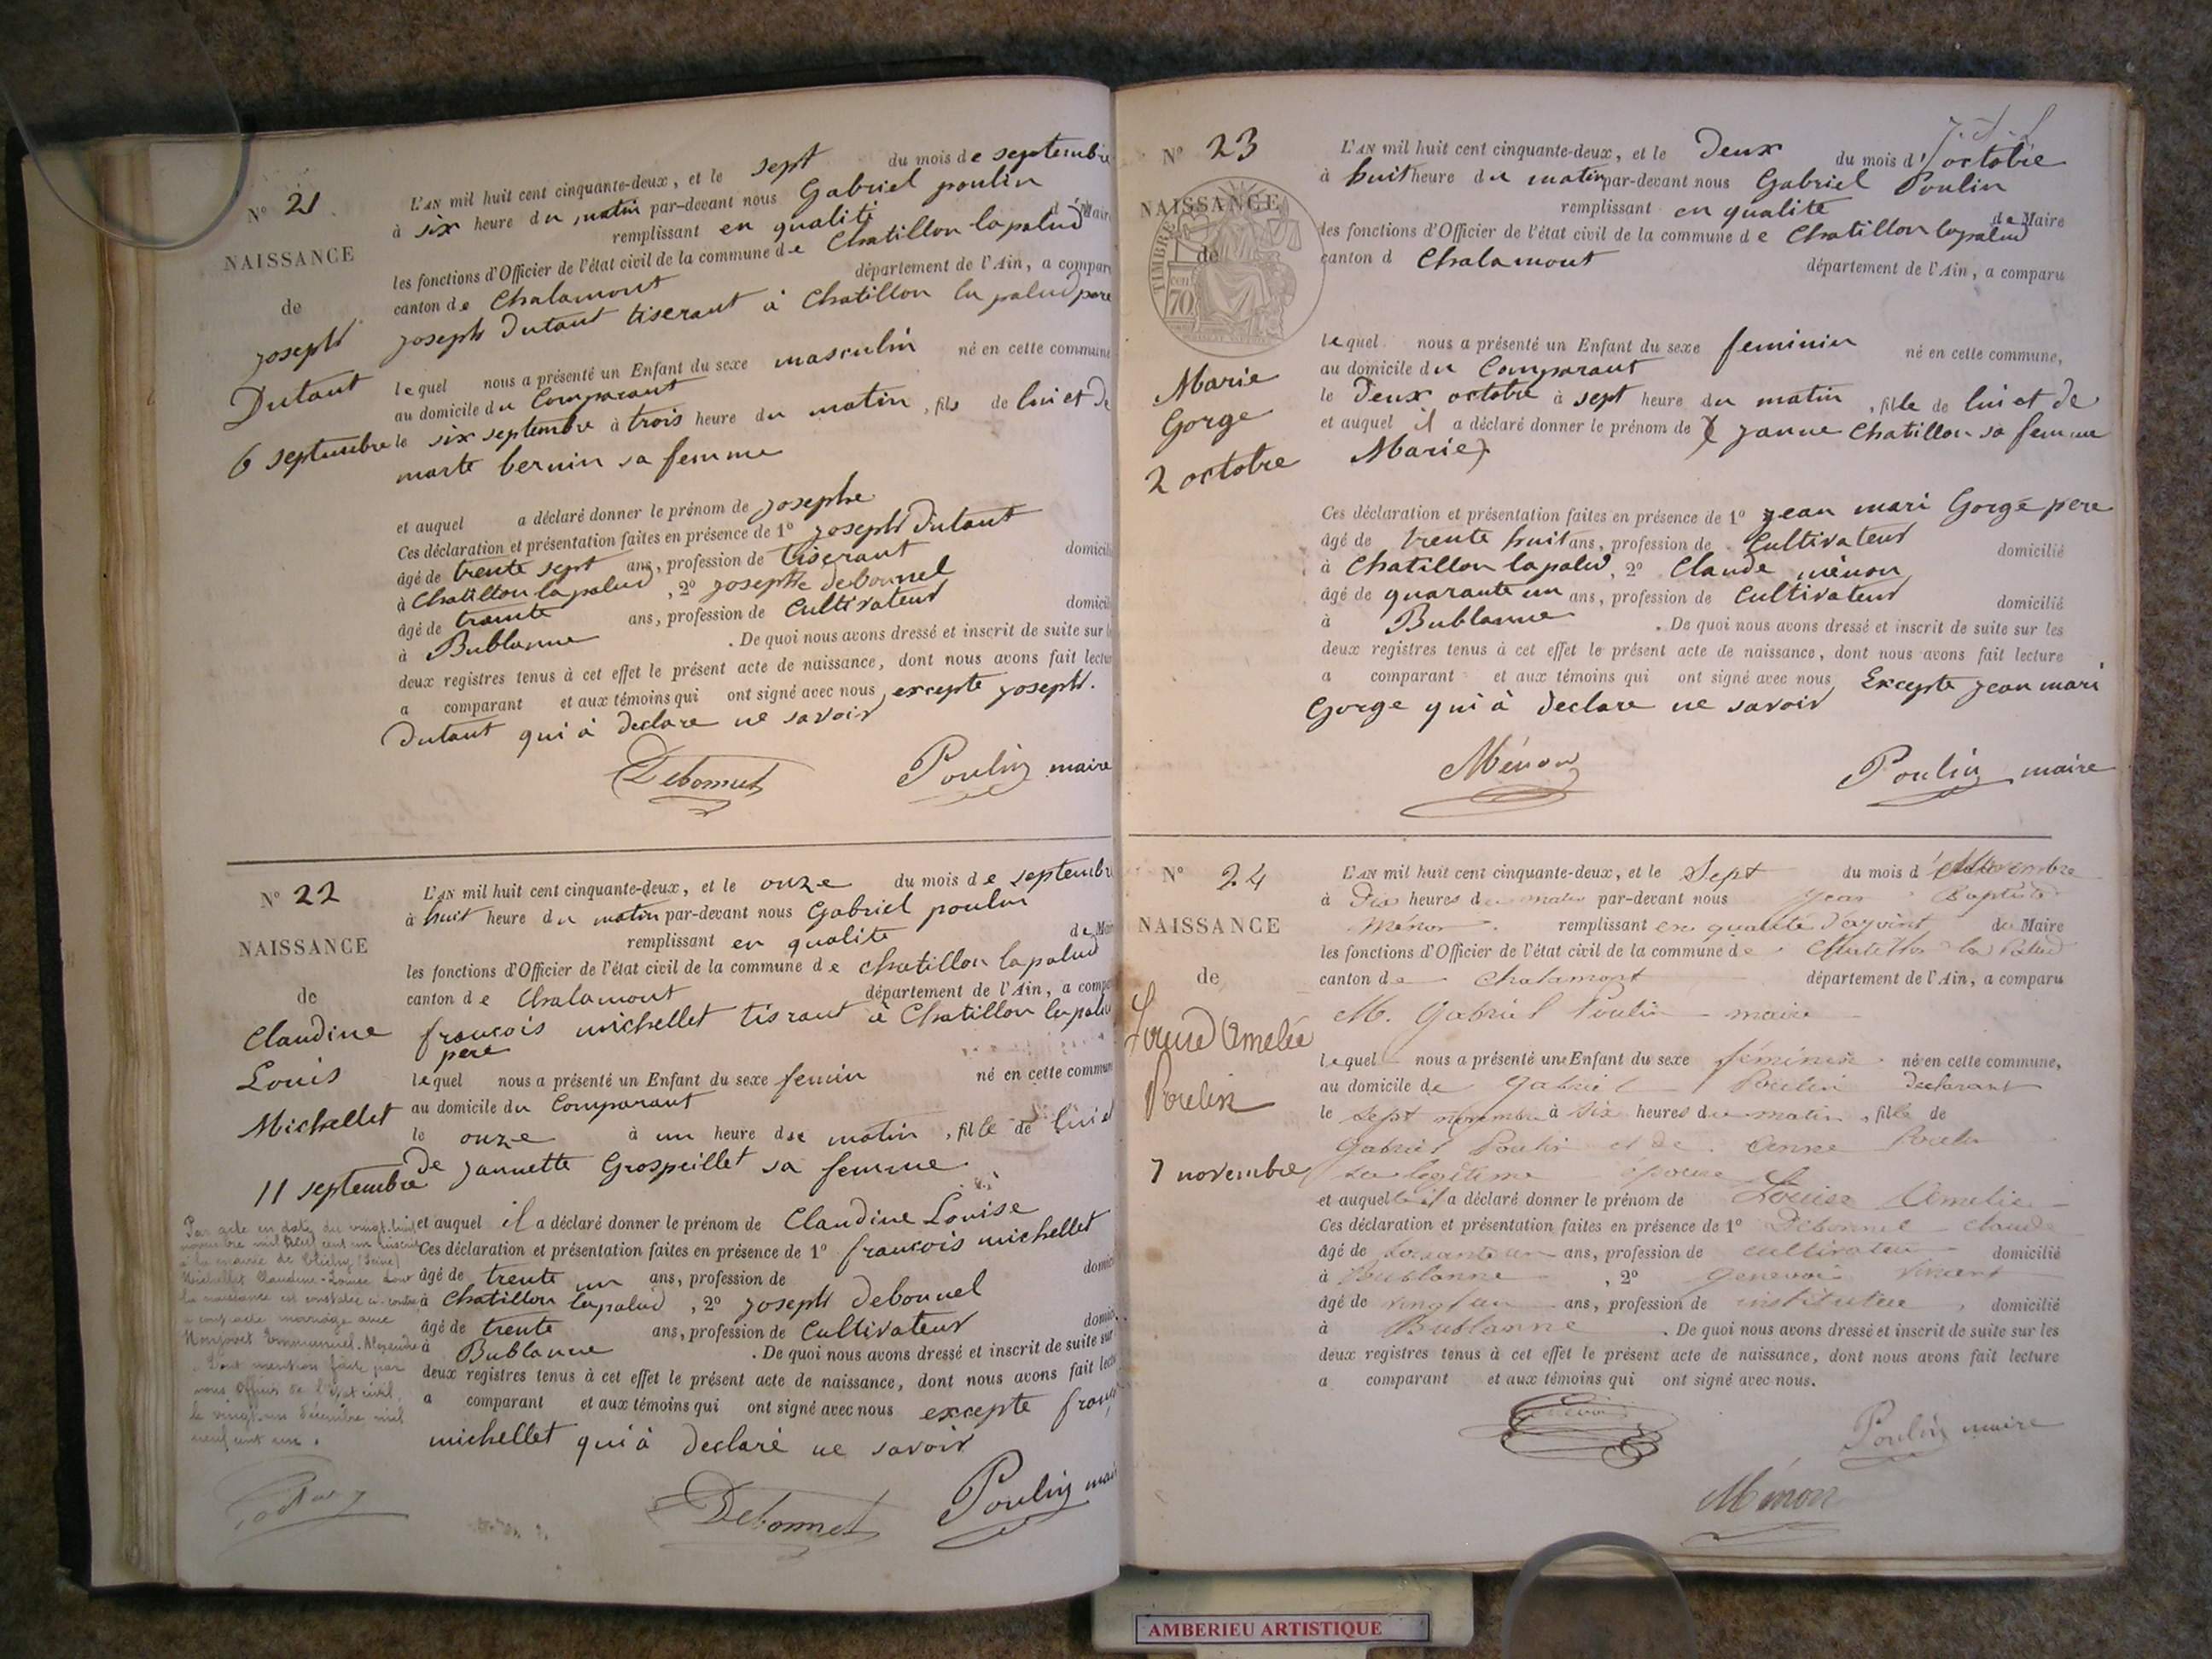 N° 21
NAISSANCE
de
joseph
Dutant
6 septembre
L'AN mil huit cent cinquante-deux, et le sept du mois de septembre
à six heure du matin par-devant nous Gabriel poulin
remplissant en qualité de Maire
les fonctions d'Officier de l'état civil de la commune de Chatillon lapalud
canton de Chalamont département de l'Ain, a comparu
joseph Dutant tiserant à Chatillon la palud pere
lequel nous a présenté un Enfant du sexe masculin né en cette commune
au domicile du Comparant
le six septembre à trois heure du matin, fils de lui et de
marte bernin sa femme
et auquel a déclaré donner le prénom de josephe
Ces déclaration et présentation faites en présence de 1° joseph Dutant
âgé de trente sept ans, profession de tiserant domicili
à Chatillon lapalud, 2° josephe debonnel
âgé de trante ans, profession de Cultivateur domicil
à Bublanne. De quoi nous avons dressé et inscrit de suite sur l
deux registres tenus à cet effet le présent acte de naissance, dont nous avons fait lectu
a comparant et aux témoins qui ont signé avec nous, excepte joseph.
Dutant qui à declare ne savoir
Debonnel Poulin maire
N° 22
NAISSANCE
de
Claudine
Louis
Michellet
11 septembre
L'AN mil huit cent cinquante-deux, et le onze du mois de septembr
à huit heure du matin par-devant nous Gabriel poulin
remplissant en qualite de Mai
les fonctions d'Officier de l'état civil de la commune de chatillon lapalud
canton de Chalamont département de l'Ain, a comp
francois michellet tisrant à Chatillon la palud
pere
lequel nous a présenté un Enfant du sexe femin né en cette commun
au domicile du Comparant
le onze à un heure du matin, fille de lui et
de jannette Grospeillet sa femme
et auquel il a déclaré donner le prénom de Claudine Louise
Ces déclaration et présentation faites en présence de 1° francois michellet
âgé de trente un ans, profession de domic
à Chatillon lapalud, 2° joseph debonnel
âgé de trente ans, profession de Cultivateur domic
à Bublanne. De quoi nous avons dressé et inscrit de suite sur
deux registres tenus à cet effet le présent acte de naissance, dont nous avons fait lect
a comparant et aux témoins qui ont signé avec nous excepte franç
michellet qui à declaré ne savoir
Debonnel Poulin mai
Par acte en date du vingt-huit
novembre mil neuf cent un inscrit
à la mairie de Clichy (Seine)
Michellet Claudine-Louise dont
la naissance est constatée ci-contre
a contracté mariage avec
Emmanuel-Alexandre
Dont mention faite par
nous Officier de l'Etat civil,
le vingt-un décembre mil
neuf cent un.
N° 23
NAISSANCE
de
TIMBRE
70
Marie
Gorge
2 octobre
L'AN mil huit cent cinquante-deux, et le Deux du mois d'octobre
à huit heure du matin par-devant nous Gabriel Poulin
remplissant en qualite de Maire
les fonctions d'Officier de l'état civil de la commune de Chatillon lapalud
canton d Chalamont département de l'Ain, a comparu
lequel nous a présenté un Enfant du sexe feminin né en cette commune,
au domicile du Comparant
le Deux octobre à sept heure du matin, fille de lui et de
et auquel il a déclaré donner le prénom de janne Chatillon sa femme
Marie
Ces déclaration et présentation faites en présence de 1° jean mari Gorge pere
âgé de trente huit ans, profession de Cultivateur domicilié
à Chatillon lapalud, 2° Claude ménon
âgé de quarante un ans, profession de Cultivateur domicilié
à Bublanne. De quoi nous avons dressé et inscrit de suite sur les
deux registres tenus à cet effet le présent acte de naissance, dont nous avons fait lecture
a comparant et aux témoins qui ont signé avec nous, Excepte jean mari
Gorge qui à declare ne savoir
Ménon Poulin maire
N° 24
NAISSANCE
de
Louise Amelie
Poulin
7 novembre
L'AN mil huit cent cinquante-deux, et le Sept du mois d novembre
à Dix heures du matin par-devant nous jean Baptiste
Ménon remplissant en qualité d'ajoint du Maire
les fonctions d'Officier de l'état civil de la commune de Chatillon la Palud
canton de Chalamont département de l'Ain, a comparu
M. Gabriel Poulin maire
lequel nous a présenté une Enfant du sexe féminin né en cette commune,
au domicile de Gabriel Poulin declarant
le sept novembre à six heures du matin, fille de
Gabriel Poulin et de Anne
sa légitime épouse
et auquel il a déclaré donner le prénom de Louise Amelie
Ces déclaration et présentation faites en présence de 1° Debonnel Claude
âgé de soixante un ans, profession de cultivateur domicilié
à Bublanne, 2° Genevois Vincent
âgé de vingt un ans, profession de instituteur, domicilié
à Bublanne. De quoi nous avons dressé et inscrit de suite sur les
deux registres tenus à cet effet le présent acte de naissance, dont nous avons fait lecture
a comparant et aux témoins qui ont signé avec nous.
Poulin maire
Ménon
AMBERIEU ARTISTIQUE